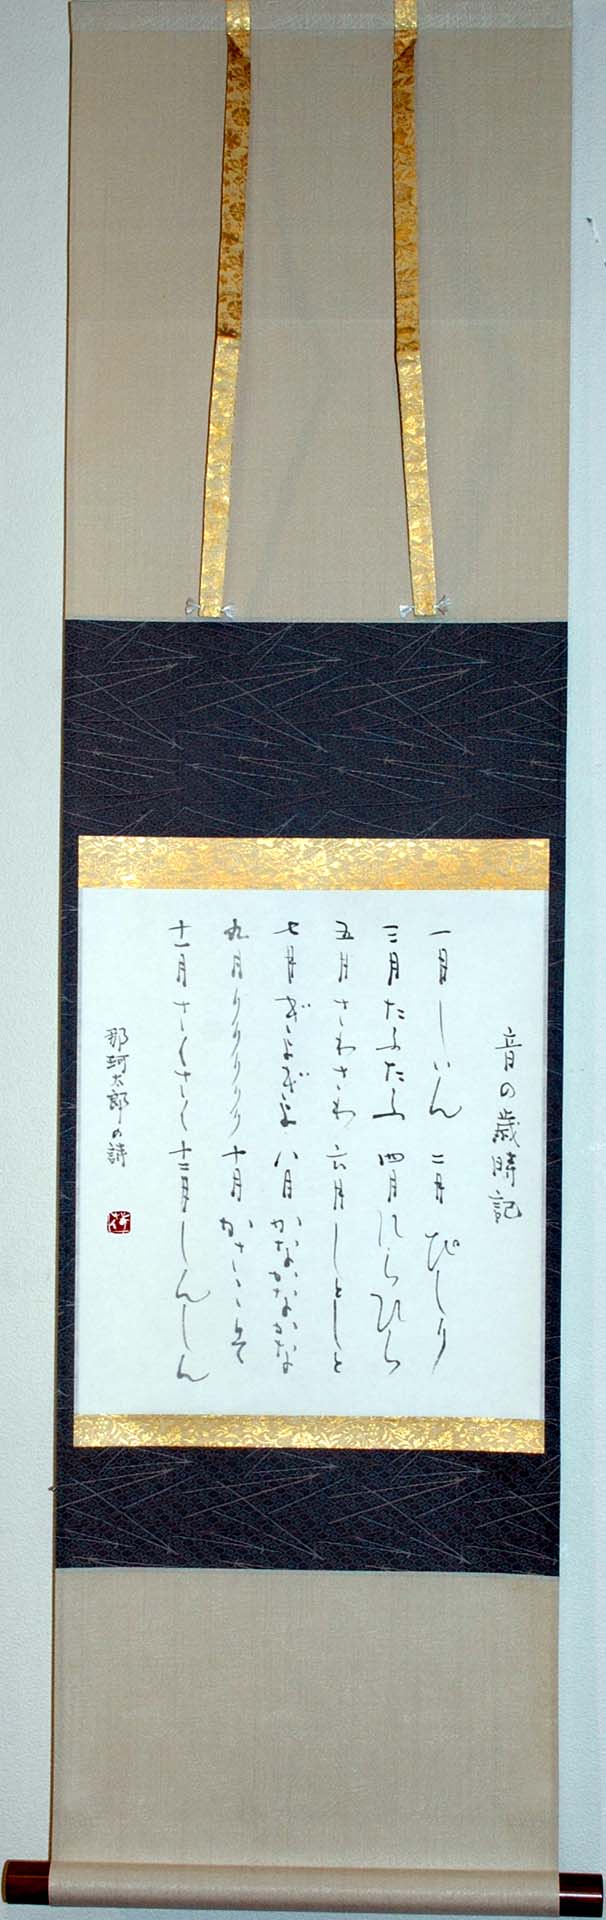 音の歳時記
一月しいん 二月 ぴしり
三月たふたふ 四月ひらひら
五月さわさわ 六月しとしと
七月ぎよぎよ 八月かなかなかな
九月りりりりり 十月かさこそ
十一月さくさく 十二月しんしん
那珂太郎の詩